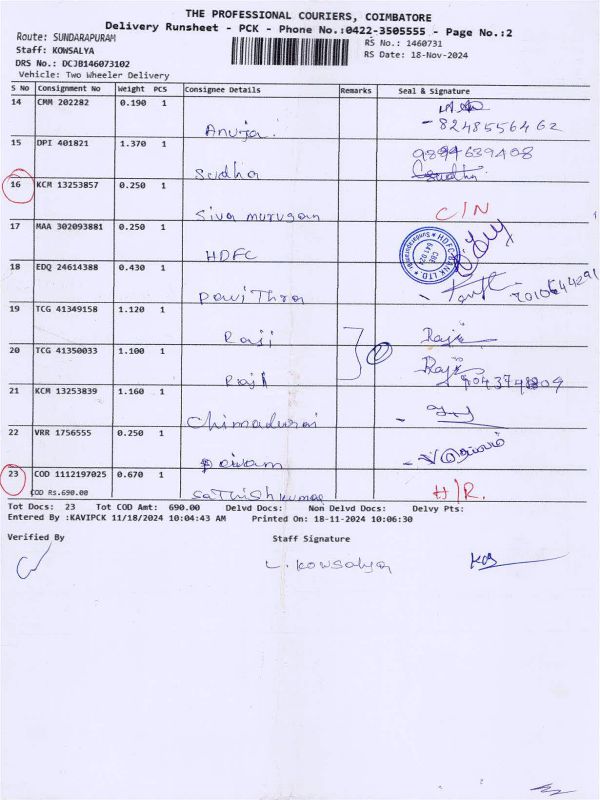 THE PROFESSIONAL COURIERS, COIMBATORE
Delivery Runsheet - PCK - Phone No.:0422-3505555 - Page No.:2
Route: SUNDARAPURAM
RS No.: 1460731
Staff: KOWSALYA
RS Date: 18-Nov-2024
DRS No.: DCJB146073102
Vehicle: Two Wheeler Delivery
S No Consignment No Weight PCS Consignee Details Remarks Seal & Signature
14 CMM 202282 0.190 1
Anuja. -8248556462
15 DPI 401821 1.370 1 9894639408
Sudha Sudha
16 KCM 13253857 0.250 1
Siva murugan C/N
17 MAA 302093881 0.250 1
HDFC HDFC BANK LTD CBE 641 024
18 EDQ 24614388 0.430 1
PaviThra 7010644291
19 TCG 41349158 1.120 1
Raji Raji
20 TCG 41350033 1.100 1 2
Raji Raji 9043748809
21 KCM 13253839 1.160 1
Chimadurai
22 VRR 1756555 0.250 1
23 COD 1112197025 0.670 1
COD Rs.690.00 Sathishkumar H/R.
Tot Docs: 23 Tot COD Amt: 690.00 Delvd Docs: Non Delvd Docs: Delvy Pts:
Entered By :KAVIPCK 11/18/2024 10:04:43 AM Printed On: 18-11-2024 10:06:30
Verified By Staff Signature
L. Kowsalya